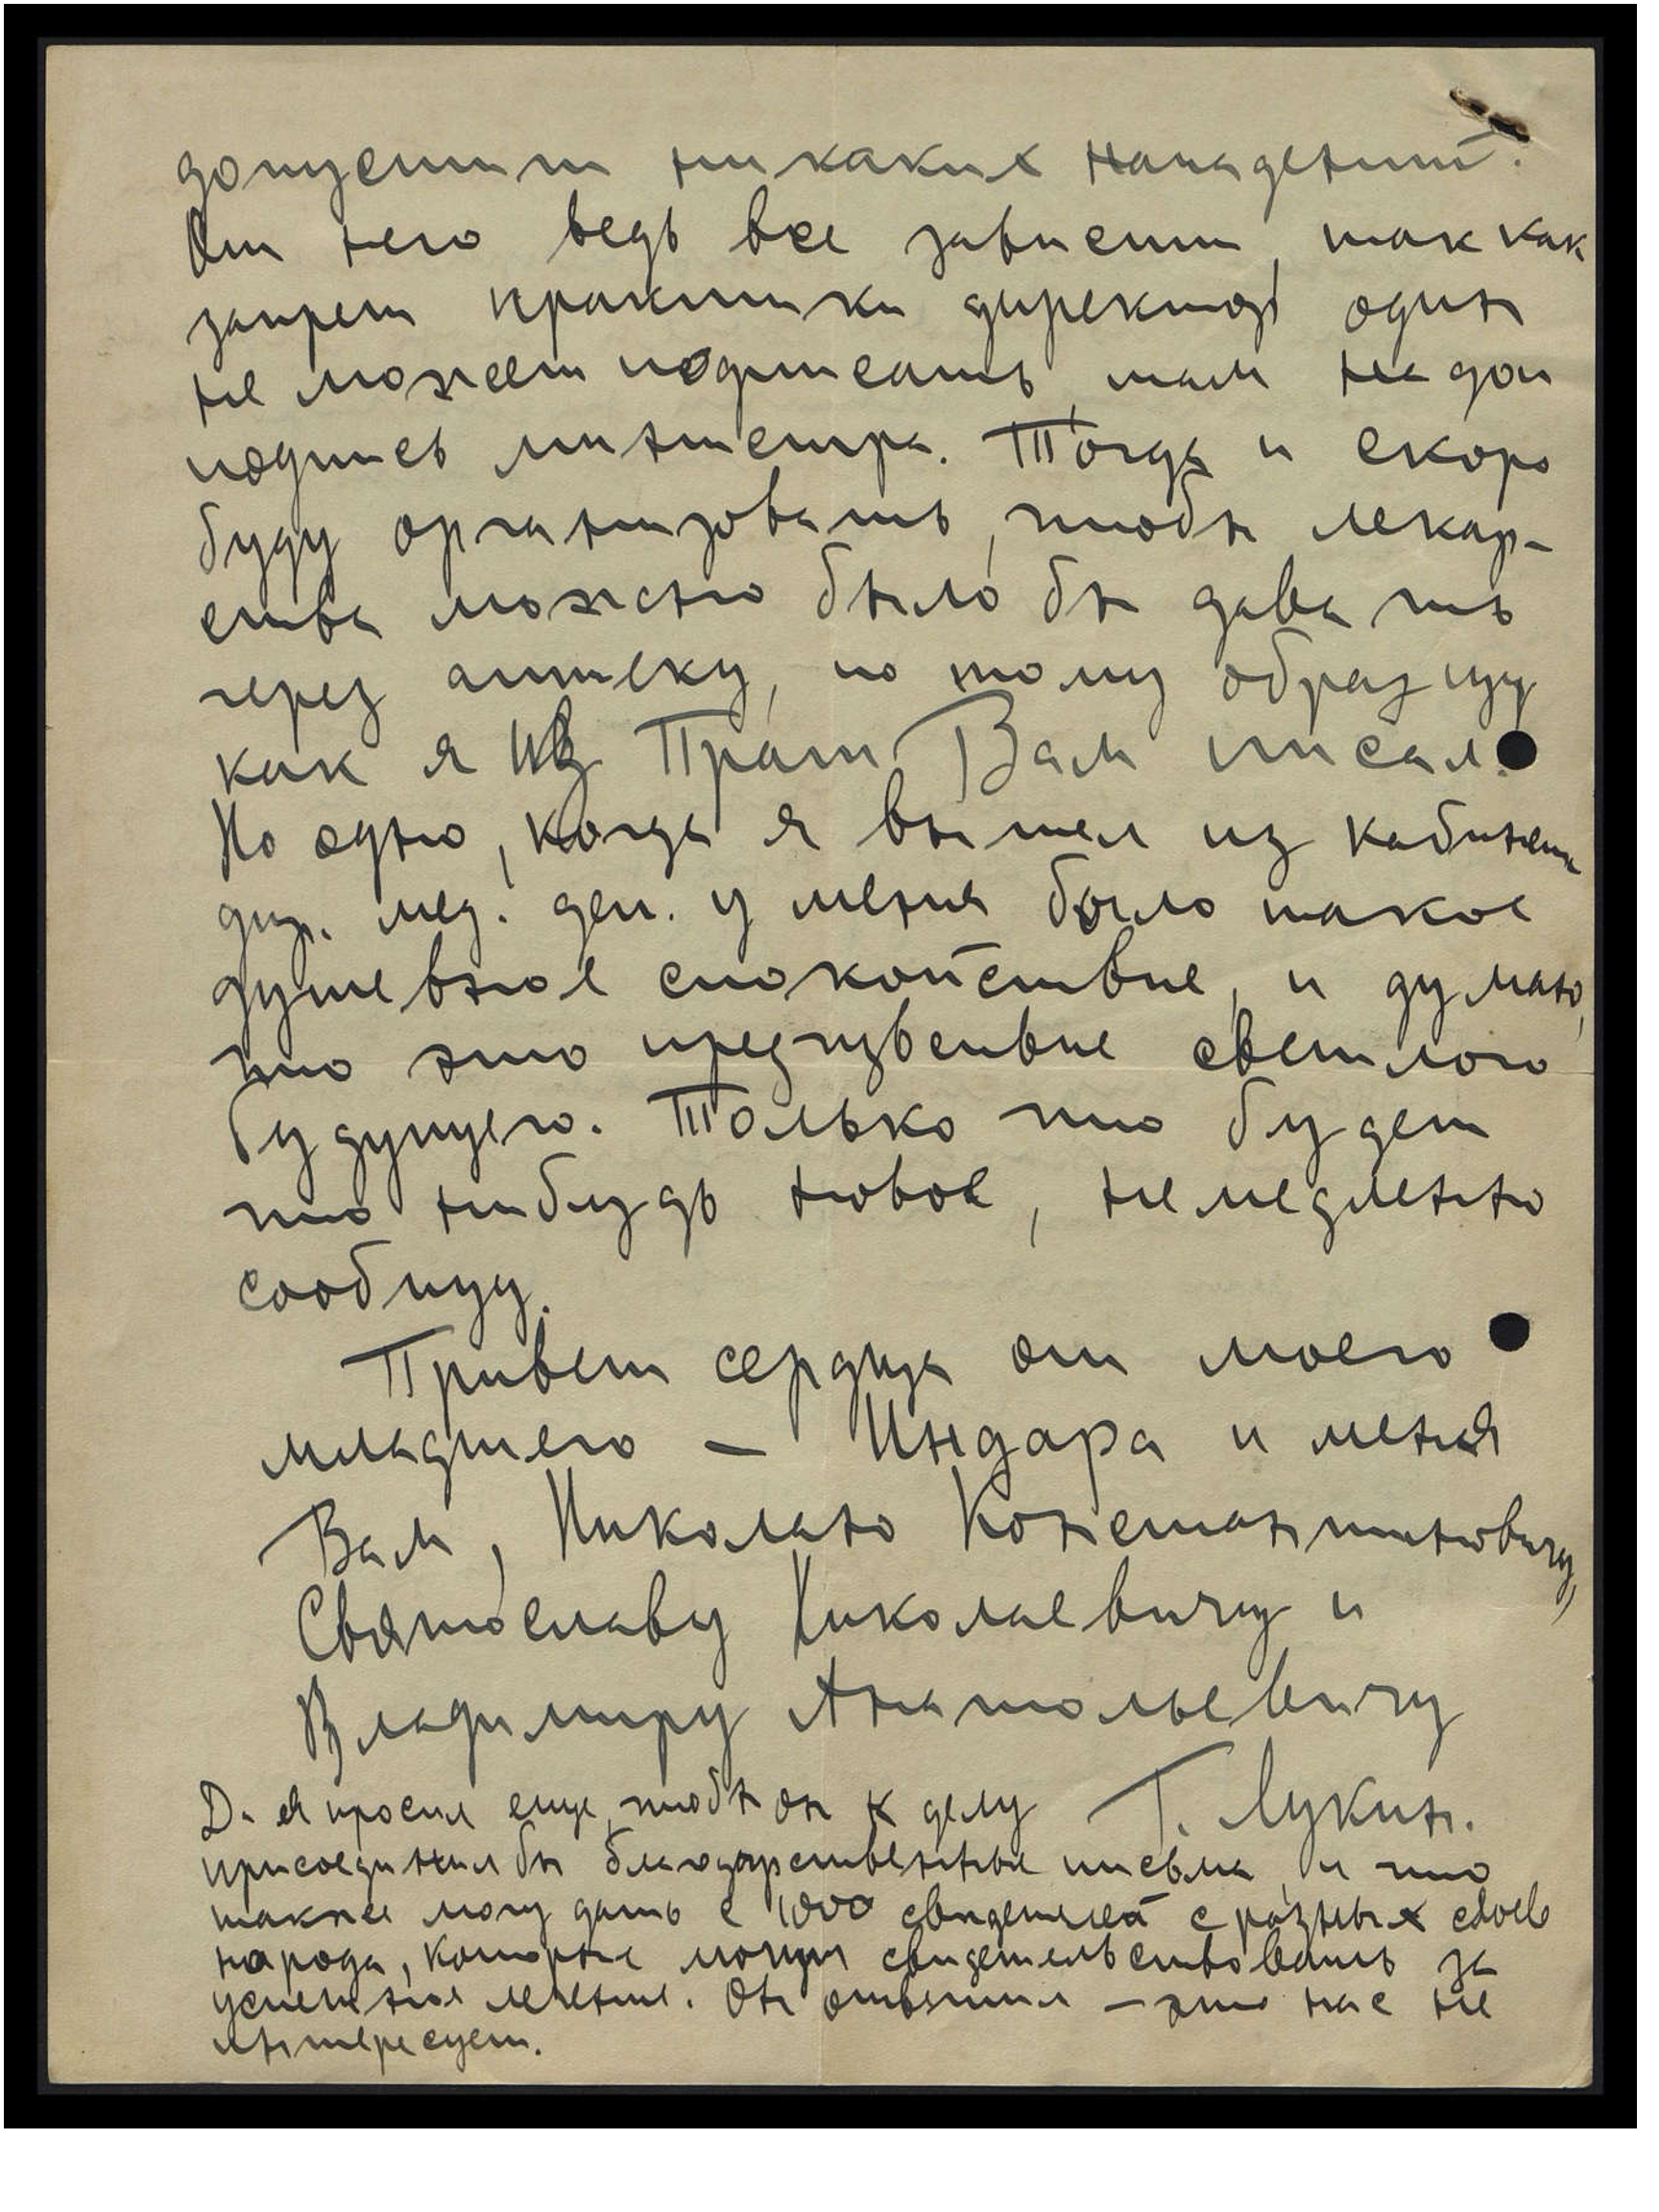 допустит никаких нападений.
От него ведь все зависит, так как
запрет практики директор один
не может подписать, там надо
подпись министра. Тогда и скоро
буду организовать, чтобы лекар-
ства можно было бы давать
через аптеку, по тому образцу
как я из Праги Вам писал.
Но одно, когда я вышел из кабинета
дир. мед. деп. у меня было такое
душевное спокойствие, и думаю,
что это предчувствие светлого
будущего. Только что будет
что нибудь новое, немедленно
сообщу.
Привет сердца от моего
младшего – Индара и меня
Вам, Николаю Константиновичу,
Святославу Николаевичу и
Владимиру Анатольевичу
Г. Лукин.
Да я просил еще, чтобы он к делу
присоединил бы благодарственные письма, и что
также могу дать с 1000 свидетелей с разных слоев
народа, которые могут свидетельствовать за
успешное лечение. Он ответил – это нас не
интересует.